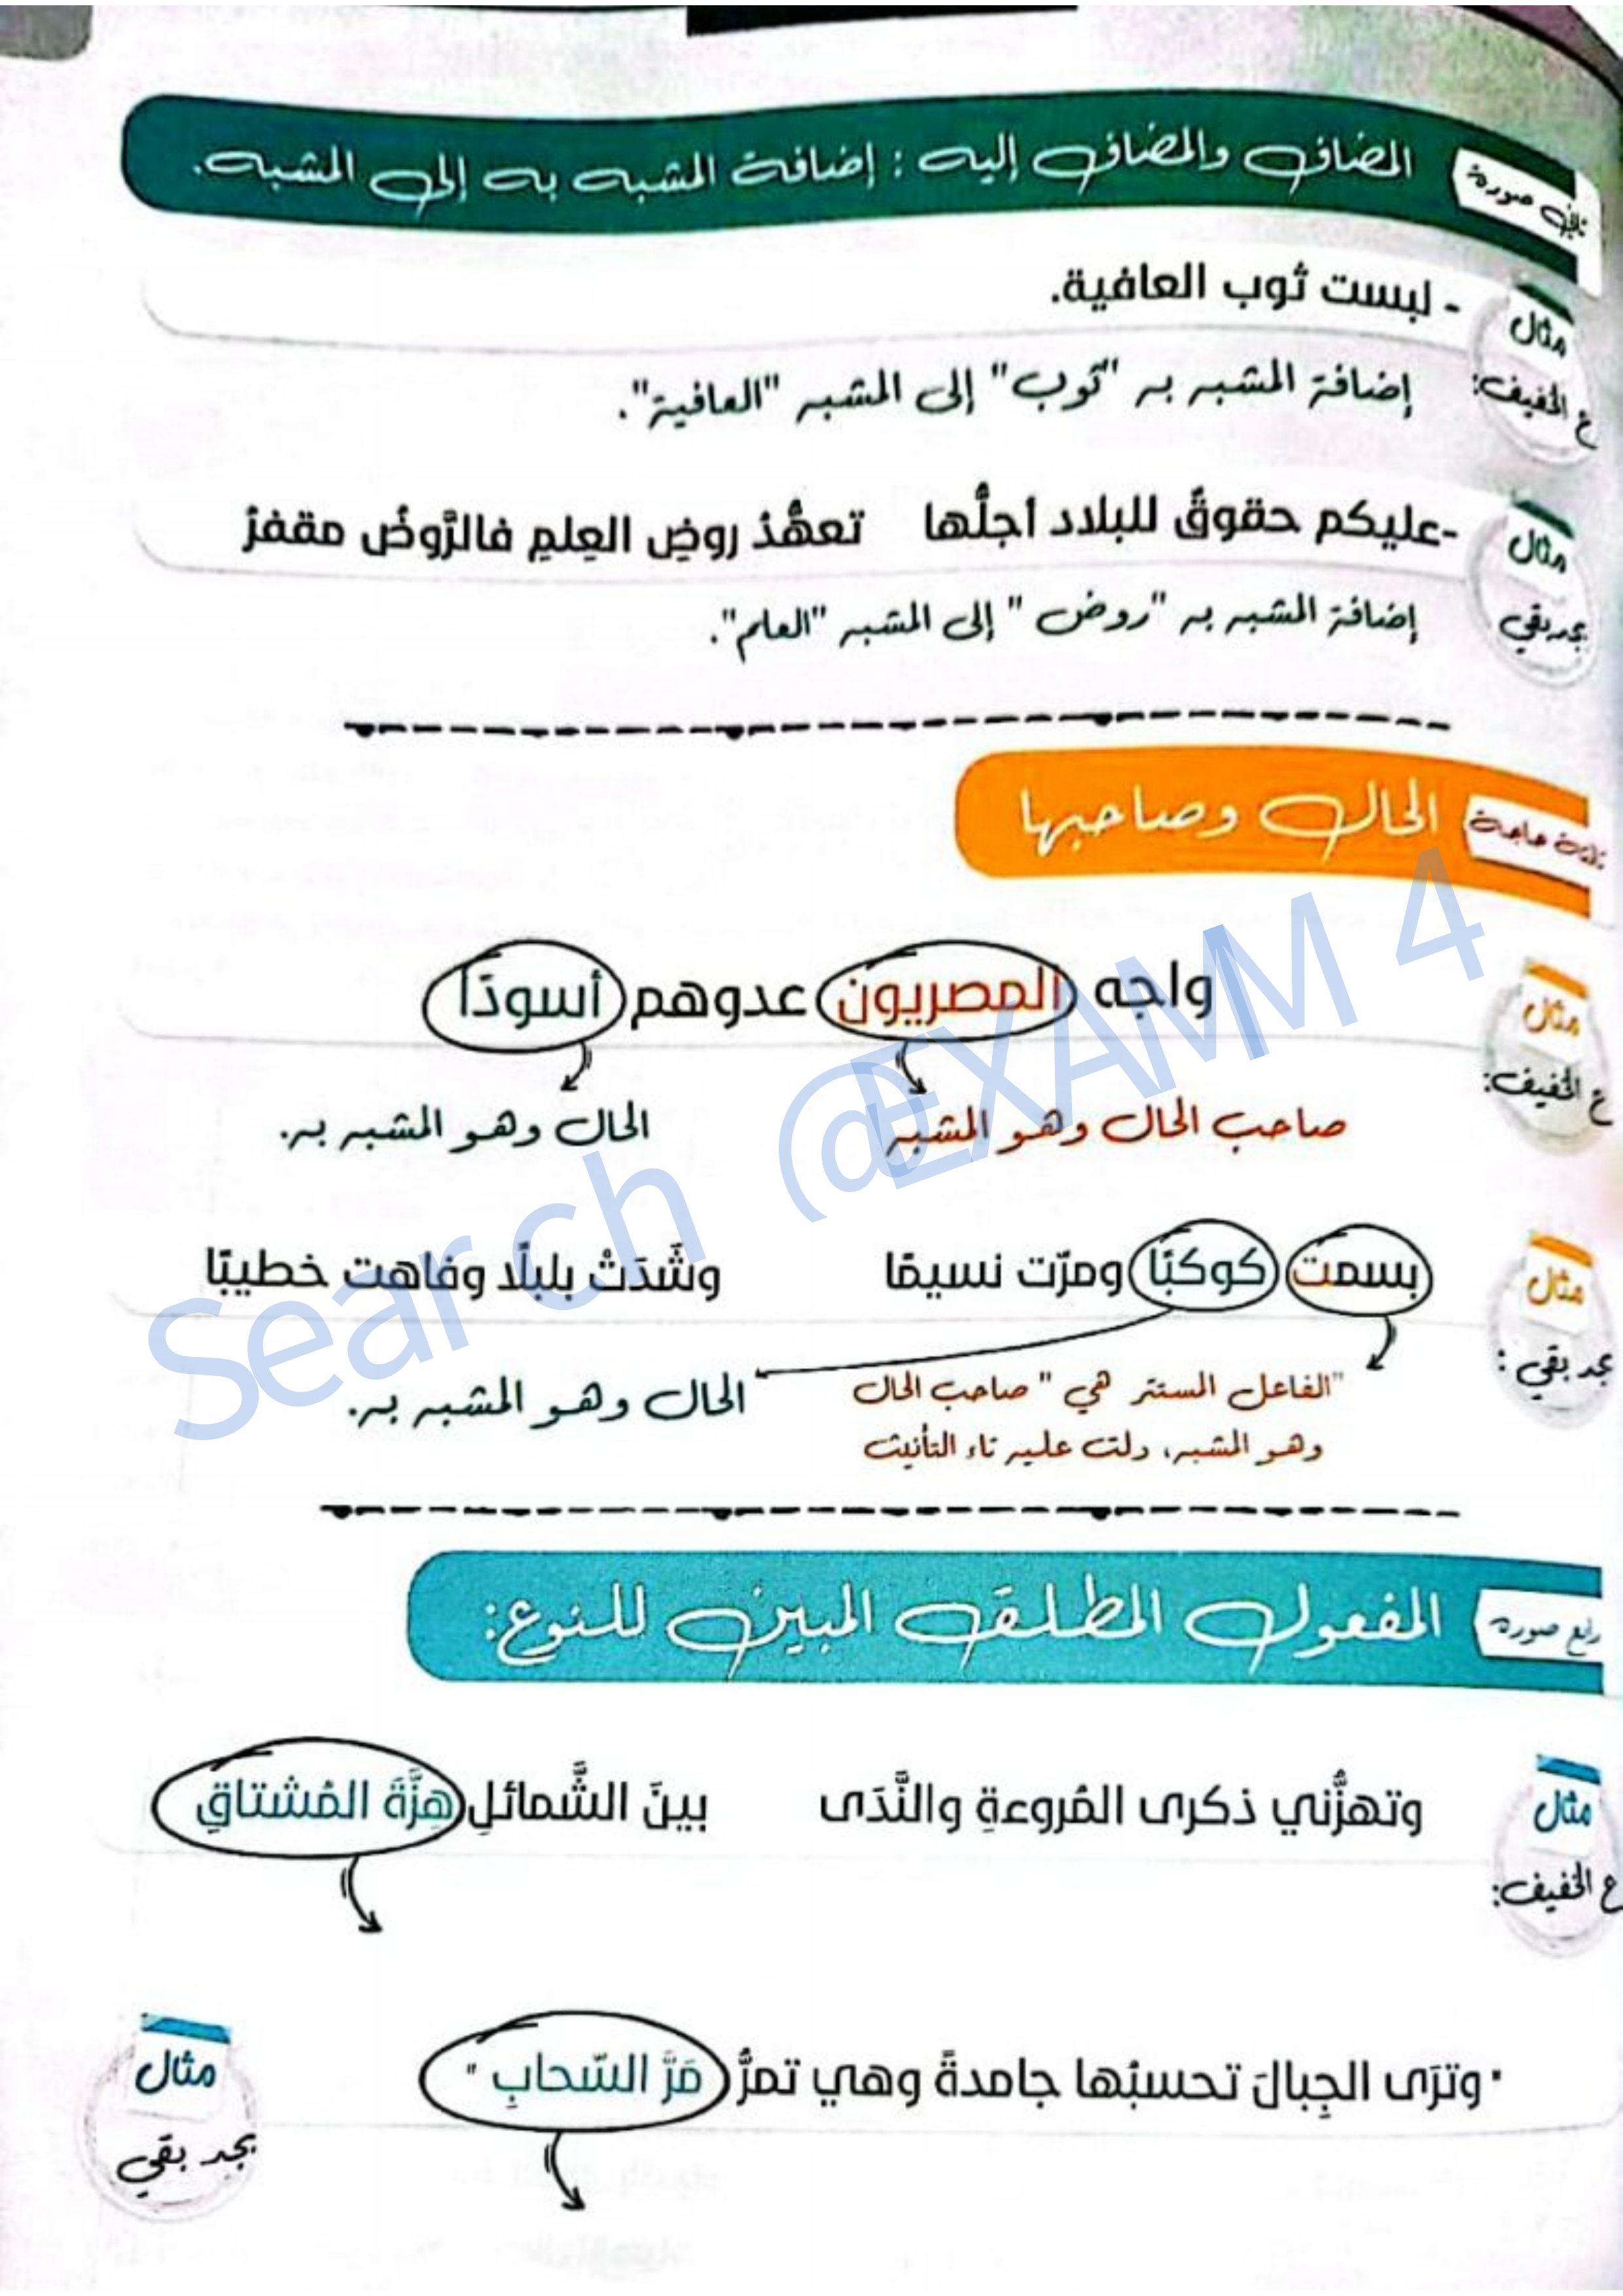 تاني صورة
المضاف والمضاف إليه : إضافة المشبه به إلى المشبه.
مثال
ع الخفيف:
- لبست ثوب العافية.
إضافة المشبه به "ثوب" إلى المشبه "العافية".
مثال
بجد بقي
-عليكم حقوقٌ للبلاد أجلُّها تعهُّدُ روضِ العِلمِ فالرَّوضُ مقفرُ
إضافة المشبه به "روض" إلى المشبه "العلم".
تالت حاجة
الحال وصاحبها
مثال
ع الخفيف:
واجه المصريون عدوهم أسودًا
صاحب الحال وهو المشبه
الحال وهو المشبه به.
مثال
بجد بقي :
بسمت كوكبًا ومرّت نسيمًا وشَدَتْ بلبلًا وفاهت خطيبًا
"الفاعل المستتر هي" صاحب الحال
وهو المشبه، دلت عليه تاء التأنيث
الحال وهو المشبه به.
رابع صورة
المفعول المطلق المبين للنوع:
مثال
ع الخفيف:
وتهزُّني ذكرى المُروءةِ والنَّدَى بينَ الشَّمائلِ هِزَّةَ المُشتاقِ
مثال
بجد بقي
" وترَى الجِبالَ تحسبُها جامدةً وهي تمرُّ مَرَّ السّحابِ "
Search @EXAMM 4